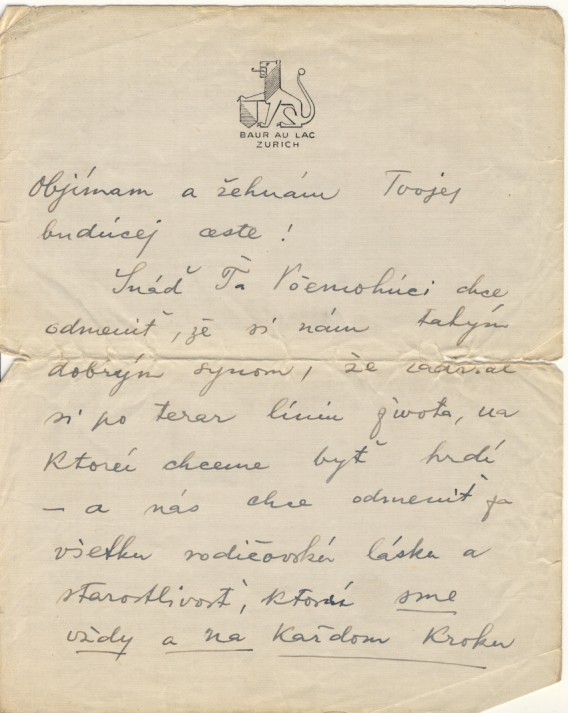 BAUR AU LAC
ZURICH
Objímam a žehnám Tvojej
budúcej ceste!
Snáď Ťa Všemohúci chce
odmeniť, že si nám takým
dobrým synom, že
si po teraz líniu života, na
ktorej chceme byť hrdí
– a nás chce odmeniť za
všetku rodičovskú lásku a
starostlivosť, ktorú sme
vždy a na každom kroku